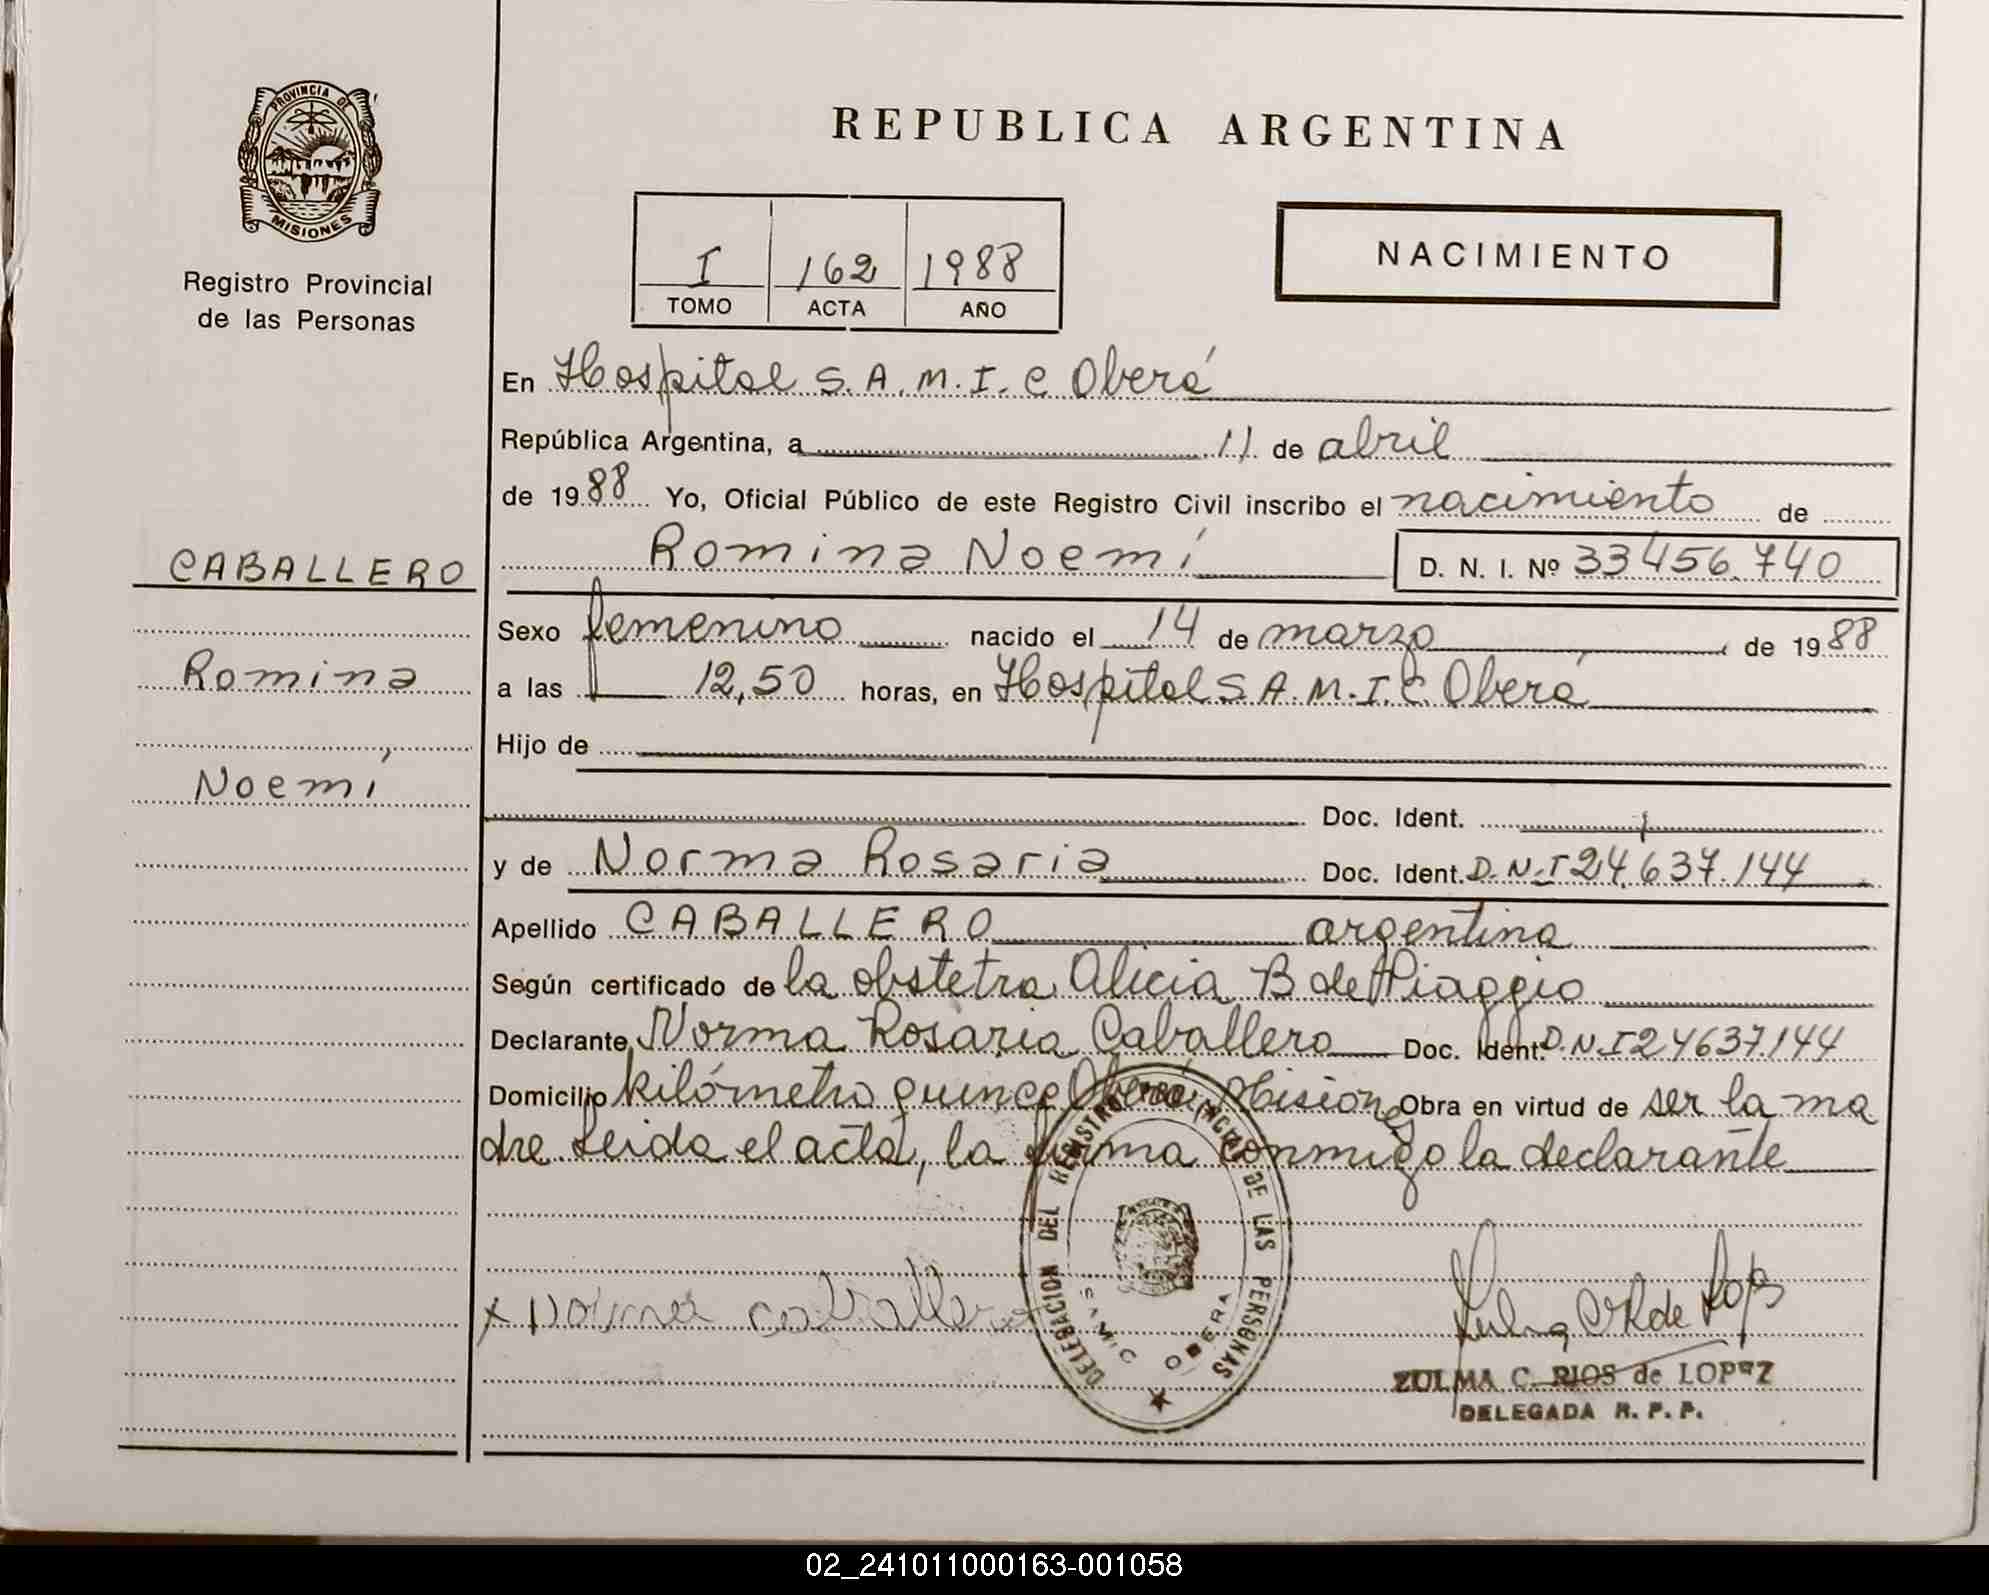 PROVINCIA DE
MISIONES
Registro Provincial
de las Personas
REPUBLICA ARGENTINA
I 162 1988
TOMO ACTA AÑO
NACIMIENTO
En Hospital S.A.M.I.C Oberá
República Argentina, a 11 de abril
de 1988 Yo, Oficial Público de este Registro Civil inscribo el nacimiento de
CABALLERO
Romina Noemí D. N. I. Nº 33456.740
Sexo femenino nacido el 14 de marzo de 1988
Romina
a las 12,50 horas, en Hospital S.A.M.I.C. Oberá
Hijo de
Noemí
Doc. Ident.
y de Norma Rosaria Doc. Ident. D.N.I 24.637.144
Apellido CABALLERO argentina
Según certificado de la obstetra Alicia B de Piaggio
Declarante Norma Rosaria Caballero Doc. Ident. D.N.I 24637.144
Domicilio kilómetro quince Oberá, Misiones Obra en virtud de ser la ma
dre. Leida el acta, la firma conmigo la declarante
DELEGACION DEL REGISTRO PROVINCIAL DE LAS PERSONAS
SAMIC OBERA
x Norma caballero
ZULMA C. RIOS de LOPEZ
DELEGADA R. P. P.
02_241011000163-001058